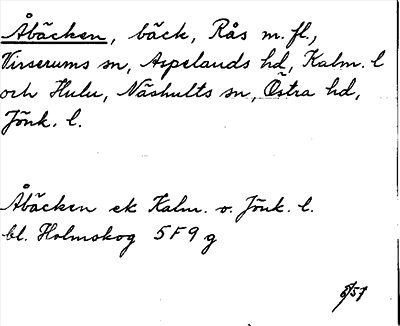 Åbäcken, bäck, Rås m. fl.,
Virserums sn, Aspelands hd, Kalm. l
och Hulu, Näshults sn, Östra hd,
Jönk. l.
Åbäcken ek Kalm. o. Jönk. l.
bl. Holmskog 5F9g